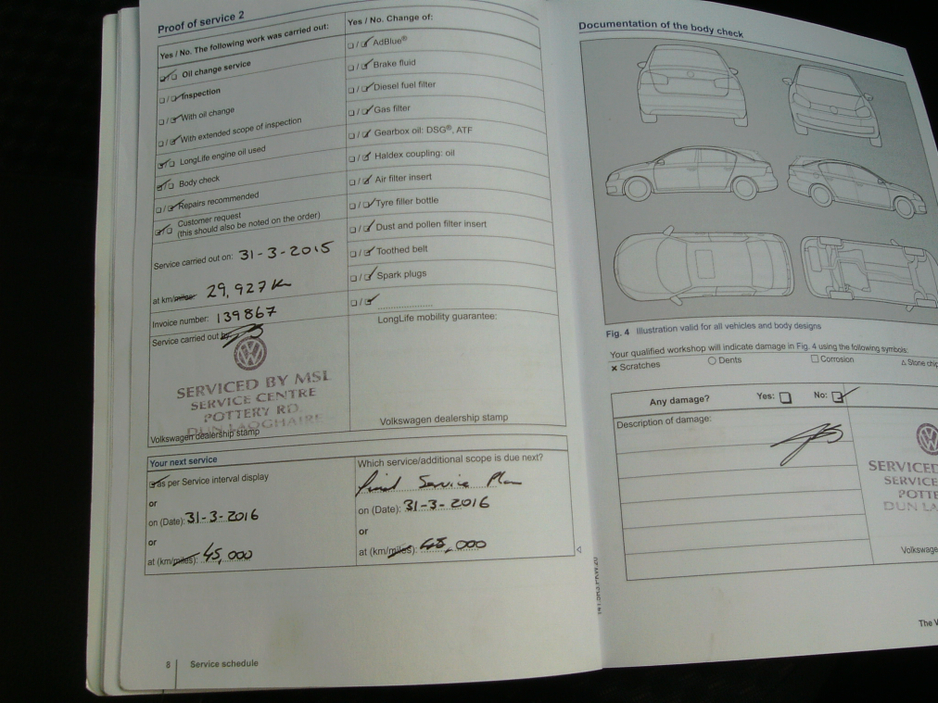 Proof of service 2
Yes / No. The following work was carried out:
Oil change service
Inspection
With oil change
With extended scope of inspection
LongLife engine oil used
Body check
Repairs recommended
Customer request
(this should also be noted on the order)
Service carried out on: 31-3-2015
at km/miles 29,927 K
Invoice number: 139867
Service carried out by
SERVICED BY MSL
SERVICE CENTRE
POTTERY RD.
DUN LAOGHAIRE
Volkswagen dealership stamp
Yes / No. Change of:
AdBlue®
Brake fluid
Diesel fuel filter
Gas filter
Gearbox oil: DSG®, ATF
Haldex coupling: oil
Air filter insert
Tyre filler bottle
Dust and pollen filter insert
Toothed belt
Spark plugs
LongLife mobility guarantee:
Volkswagen dealership stamp
Your next service
as per Service interval display
or
on (Date): 31-3-2016
or
at (km/miles): 45,000
Which service/additional scope is due next?
Service Plan
on (Date): 31-3-2016
or
at (km/miles): 45,000
8 Service schedule
Documentation of the body check
Fig. 4 Illustration valid for all vehicles and body designs
Your qualified workshop will indicate damage in Fig. 4 using the following symbols:
x Scratches
Dents
Corrosion
Stone chip
Any damage? Yes: No:
Description of damage:
SERVICED
SERVICE
POTTE
DUN LA
Volkswage
The V